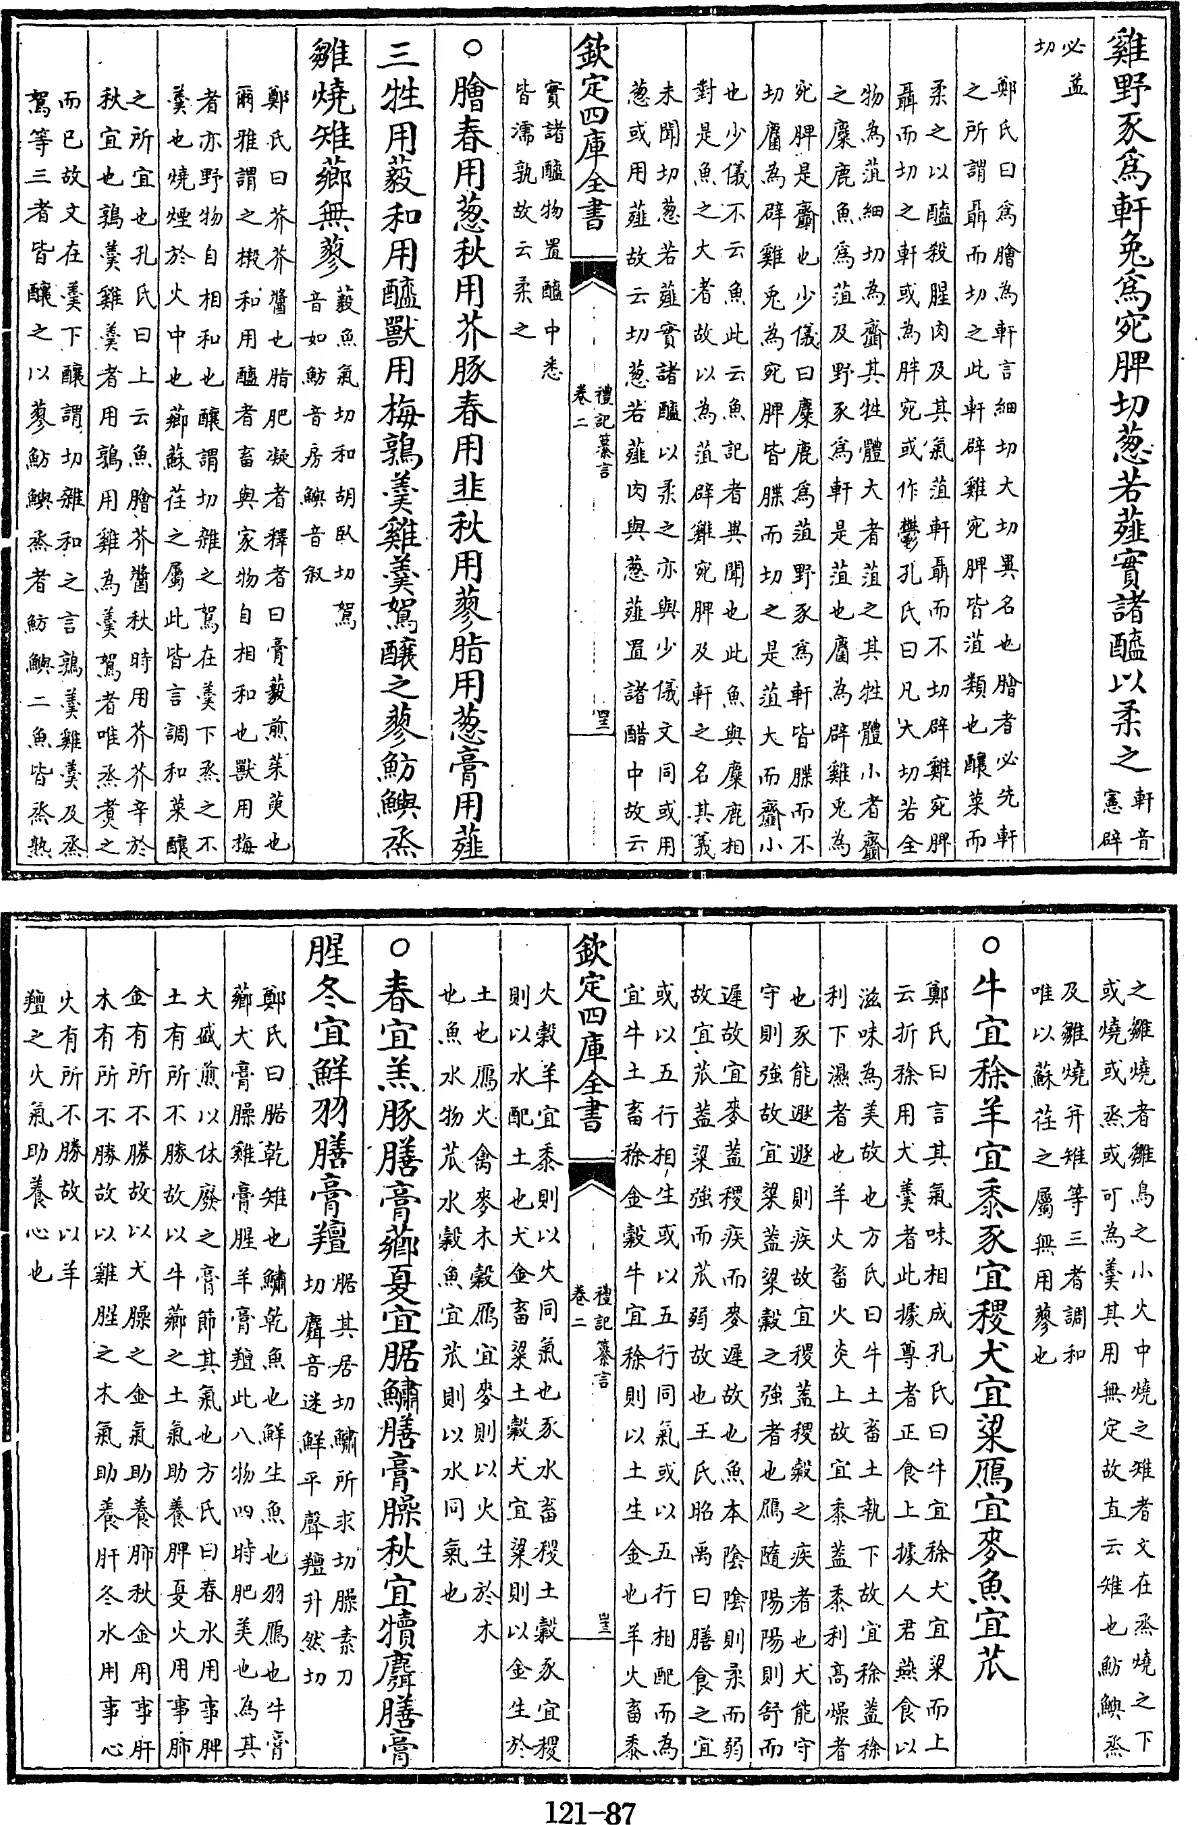 雞野豕爲軒兔爲宛脾切葱若薤實諸醯以柔之軒音
憲辟
必益
切
鄭氏曰爲膾為軒言細切大切異名也膾者必先軒
之所謂聶而切之此軒辟雞宛脾皆菹類也釀菜而
柔之以醯殺腥肉及其氣菹軒聶而不切辟雞宛脾
聶而切之軒或為胖宛或作鬱孔氏曰凡大切若全
物為菹細切為齏其牲體大者菹之其牲體小者齏
之麋鹿魚爲菹及野豕爲軒是菹也麕為辟雞兎為
宛脾是齏也少儀曰麋鹿爲菹野豕爲軒皆牒而不
切麕為辟雞兎為宛脾皆牒而切之是菹大而齏小
也少儀不云魚此云魚記者異聞也此魚與麋鹿相
對是魚之大者故以為菹辟雞宛脾及軒之名其義
未聞切葱若薤實諸醯以柔之亦與少儀文同或用
葱或用薤故云切葱若薤肉與葱薤置諸醋中故云
欽定四庫全書
禮記纂言
卷二
四三
實諸醯物置醯中悉
皆濡孰故云柔之
○膾春用葱秋用芥豚春用韭秋用蓼脂用葱膏用薤
三牲用藙和用醯獸用梅鶉羹雞羹鴽釀之蓼魴鱮烝
雛燒雉薌無蓼藙魚氣切和胡臥切鴽
音如魴音房鱮音叙
鄭氏曰芥芥醬也脂肥凝者釋者曰膏藙煎茱萸也
爾雅謂之樧和用醯者畜與家物自相和也獸用梅
者亦野物自相和也釀謂切雜之鴽在羹下烝之不
羹也燒煙於火中也薌蘇荏之屬此皆言調和菜釀
之所宜也孔氏曰上云魚膾芥醬秋時用芥芥辛於
秋宜也鶉羹雞羹者用鶉用雞為羹鴽者唯烝煑之
而已故文在羹下釀謂切雜和之言鶉羹雞羹及烝
鴽等三者皆釀之以蓼魴鱮烝者魴鱮二魚皆烝熟
之雛燒者雛鳥之小火中燒之雉者文在烝燒之下
或燒或烝或可為羹其用無定故直云雉也魴鱮烝
及雛燒并雉等三者調和
唯以蘇荏之屬無用蓼也
○牛宜稌羊宜黍豕宜稷犬宜粱鴈宜麥魚宜苽
鄭氏曰言其氣味相成孔氏曰牛宜稌犬宜粱而上
云折稌用犬羹者此據尊者正食上據人君燕食以
滋味為美故也方氏曰牛土畜土執下故宜稌蓋稌
利下濕者也羊火畜火炎上故宜黍蓋黍利高燥者
也豕能遯遯則疾故宜稷蓋稷穀之疾者也犬能守
守則強故宜粱蓋粱穀之強者也鴈隨陽陽則舒而
遲故宜麥蓋稷疾而麥遲故也魚本陰陰則柔而弱
故宜苽蓋粱強而苽弱故也王氏昭禹曰膳食之宜
或以五行相生或以五行同氣或以五行相配而為
宜牛土畜稌金穀牛宜稌則以土生金也羊火畜黍
欽定四庫全書
禮記纂言
卷二
火穀羊宜黍則以火同氣也豕水畜稷土穀豕宜稷
則以水配土也犬金畜粱土穀犬宜粱則以金生於
土也鴈火禽麥木穀鴈宜麥則以火生於木
也魚水物苽水穀魚宜苽則以水同氣也
○春宜羔豚膳膏薌夏宜腒鱐膳膏臊秋宜犢麛膳膏
腥冬宜鮮羽膳膏羶腒其居切鱐所求切臊素刀
切麛音迷鮮平聲羶升然切
鄭氏曰腒乾雉也鱐乾魚也鮮生魚也羽鴈也牛膏
薌犬膏臊雞膏腥羊膏羶此八物四時肥美也為其
大盛煎以休廢之膏節其氣也方氏曰春木用事脾
土有所不勝故以牛薌之土氣助養脾夏火用事肺
金有所不勝故以犬臊之金氣助養肺秋金用事肝
木有所不勝故以雞腥之木氣助養肝冬水用事心
火有所不勝故以羊
羶之火氣助養心也
121-87